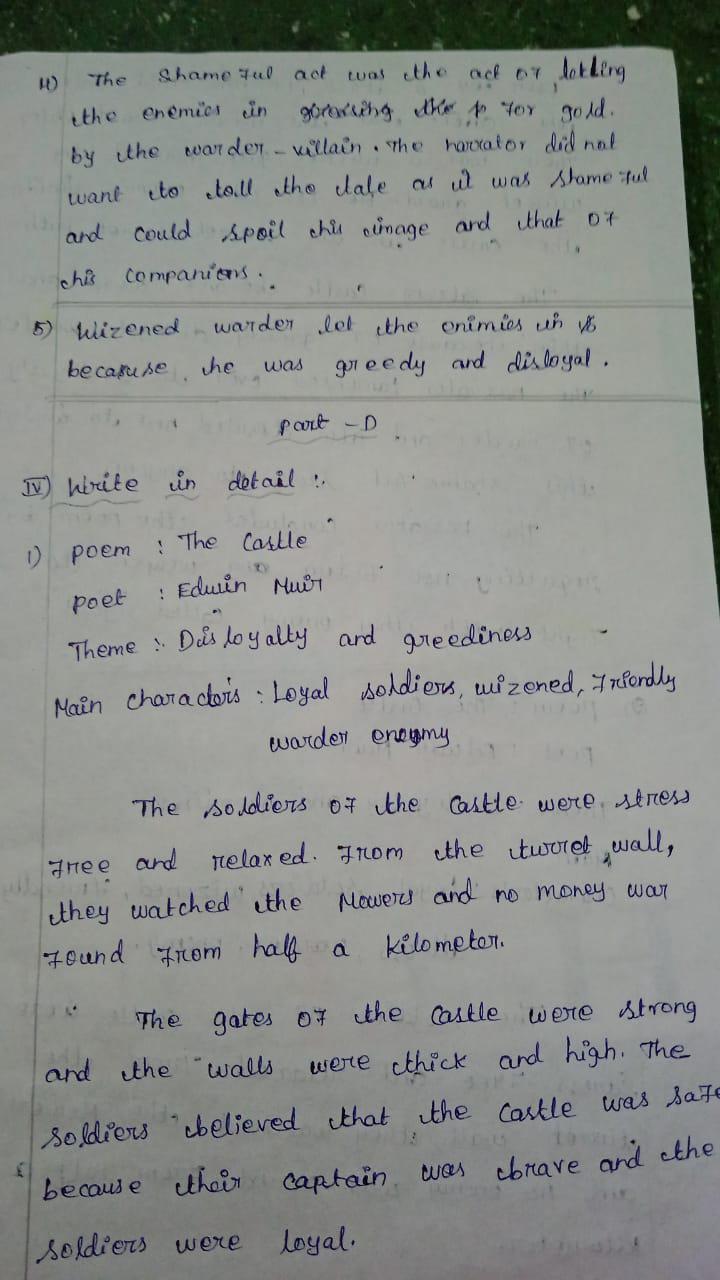 4) The shameful act was the act of letting
the enemies in for gold.
by the warder-villain. The narrator did not
want to tell the tale as it was shameful
and could spoil his image and that of
his companions.
5) Wizened warder let the enimies in
because he was greedy and disloyal.
Part - D
IV) Write in detail :.
1) poem : The Castle
poet : Edwin Muir
Theme : Disloyalty and greediness
Main characters : Loyal soldiers, wizened, Friendly
warder enemy
The soldiers of the castle were stress
free and relaxed. From the turret wall,
they watched the Mowers and no money war
found from half a kilometer.
The gates of the castle were strong
and the walls were thick and high. The
soldiers believed that the castle was safe
because their captain was brave and the
soldiers were loyal.